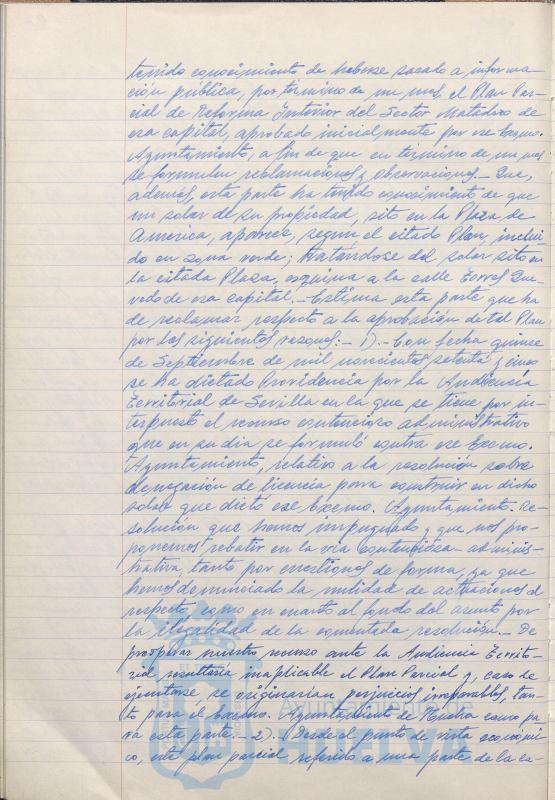 tenido conocimiento de haberse sacado a informa-
ción pública, por término de un mes, el Plan Par-
cial de Reforma Interior del Sector Matadero de
esa capital, aprobado inicialmente por ese Excmo.
Ayuntamiento, a fin de que en término de un mes
se formulen reclamaciones y observaciones.- Que,
además, esta parte ha tenido conocimiento de que
un solar de su propiedad, sito en la Plaza de
América, aparece, según el citado Plan, inclui-
do en zona verde; tratándose del solar sito en
la citada Plaza, esquina a la calle Torres Que-
vedo de esa capital.- Estima esta parte que ha
de reclamar respecto a la aprobación de tal Plan
por las siguientes razones:- 1).- Con fecha quince
de Septiembre de mil novecientos setenta y cinco
se ha dictado Providencia por la Audiencia
Territorial de Sevilla en la que se tiene por in-
terpuesto el recurso contencioso administrativo
que en su día se formuló contra ese Excmo.
Ayuntamiento, relativo a la resolución sobre
denegación de licencia para construir en dicho
solar que dictó ese Excmo. Ayuntamiento. Re-
solución que hemos impugnado y que nos pro-
ponemos rebatir en la vía contenciosa-adminis-
trativa tanto por cuestiones de forma, ya que
hemos denunciado la nulidad de actuaciones al
respecto, como en cuanto al fondo del asunto por
la ilegalidad de la comentada resolución.- De
prosperar nuestro recurso ante la Audiencia Territo-
rial resultaría inaplicable el Plan Parcial y, caso de
ejecutarse se originarían perjuicios irreparables, tan-
to para el Excmo. Ayuntamiento de Huelva como pa-
ra esta parte.- 2).- Desde el punto de vista económi-
co, este plan parcial referido a una parte de la ca-
Ayuntamiento de
HUELVA